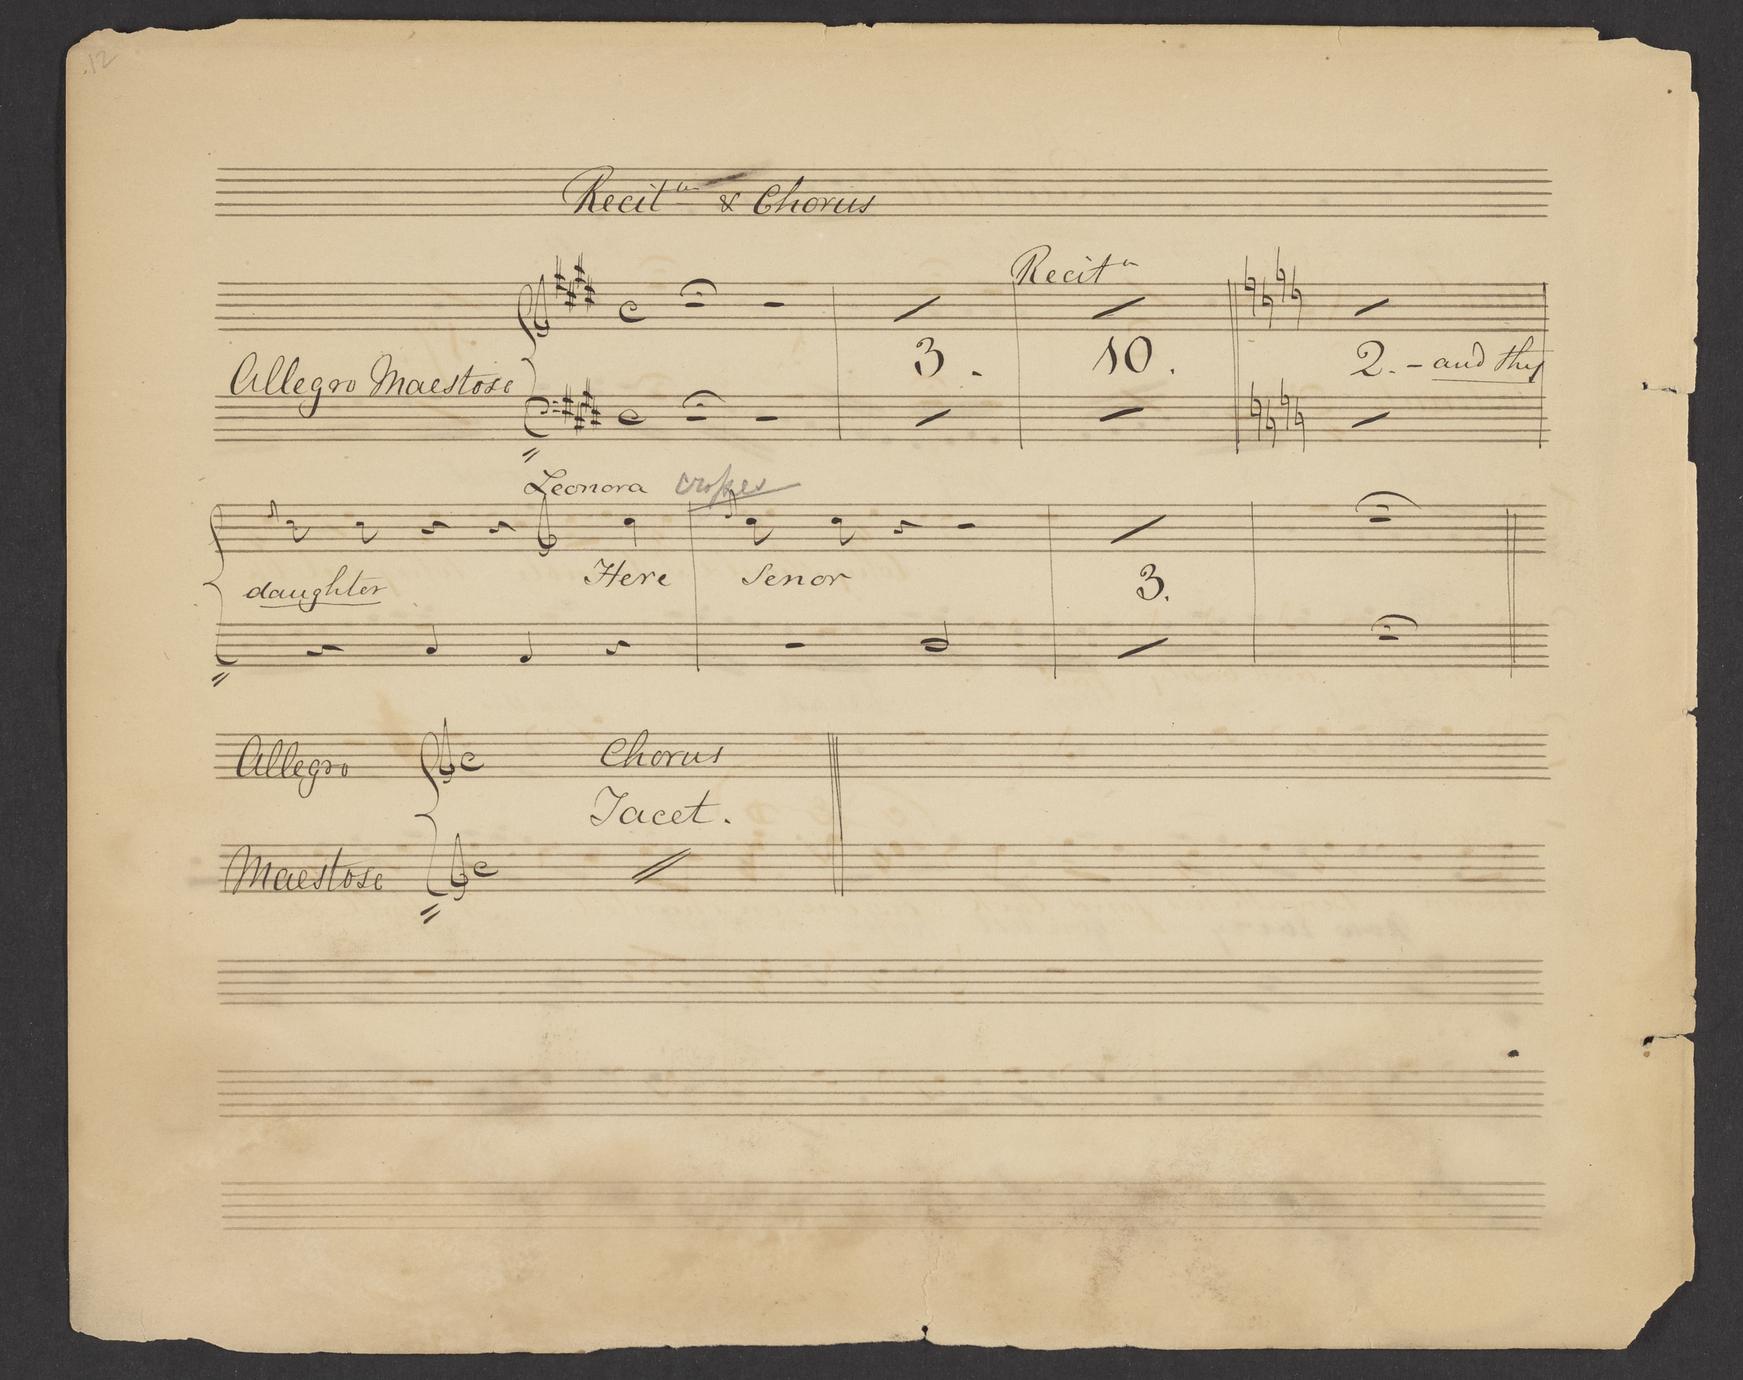 12
Recit.ve & Chorus
Recit.ve
3. 10. 2. - and thy
Allegro Maestoso
Leonora crosses
daughter Here Senor
3.
Allegro Chorus
Tacet.
Maestoso